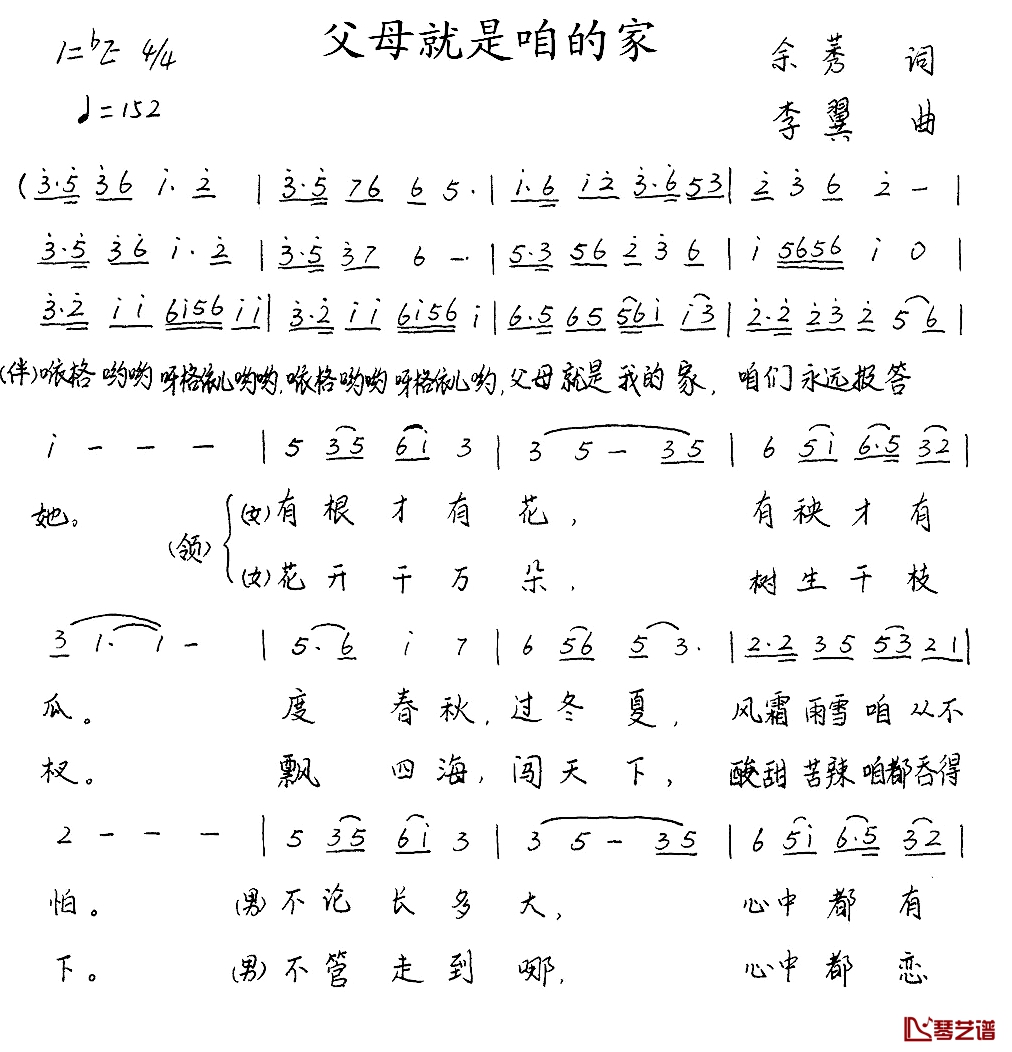 父母就是咱的家
1=♭E 4/4
余莠 词
♩=152
李翼 曲
(3̇·5̇ 3̇6 i· 2̇ | 3̇·5̇ 76 6 5· | i·6 i2̇ 3̇·6̇ 53 | 2̇ 3̇ 6 2̇ - |
3̇·5̇ 3̇6 i· 2̇ | 3̇·5̇ 3̇7 6 - · | 5·3 56 2̇ 3̇ 6 | i 5656 i 0 |
3̇·2̇ i i 6i56 i i | 3̇·2̇ i i 6i56 i | 6·5 65 56i i3̇ | 2̇·2̇ 2̇3̇ 2̇ 5 6 |
(伴)咴格哟哟呀格依儿哟哟,咴格哟哟呀格依儿哟,父母就是我的家,咱们永远报答
i - - - | 5 35 6i 3 | 3 5 - 35 | 6 5i 6·5 32 |
她。 (领) (女)有根才有花, 有秧才有
(女)花开千万朵, 树生千枝
3 1· 1 - | 5·6 i 7 | 6 56 5 3· | 2·2 35 53 21 |
瓜。 度春秋,过冬夏, 风霜雨雪咱从不
杈。 飘四海,闯天下, 酸甜苦辣咱都吞得
2 - - - | 5 35 6i 3 | 3 5 - 35 | 6 5i 6·5 32 |
怕。 (男)不论长多大, 心中都有
下。 (男)不管走到哪, 心中都恋
琴艺谱